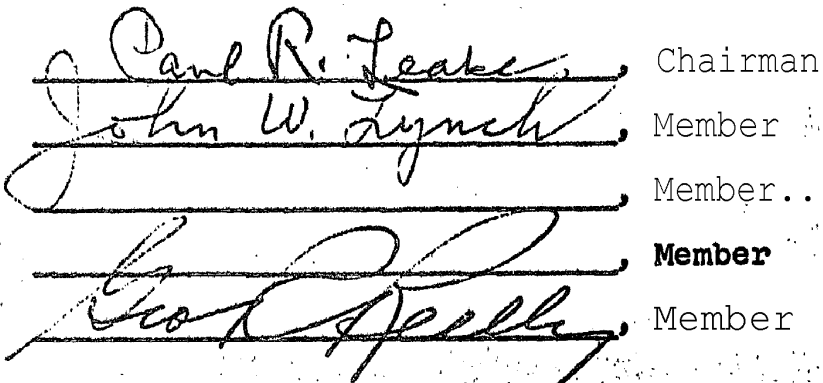 Paul R. Leake, Chairman
John W. Lynch, Member
, Member
, Member
Geo. R. Reilly, Member